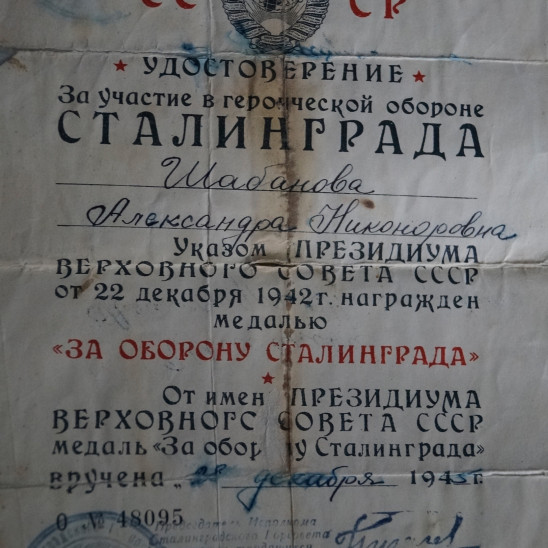 СССР
★ УДОСТОВЕРЕНИЕ ★
За участие в героической обороне
СТАЛИНГРАДА
Шабанова
Александра Никоноровна
Указом ПРЕЗИДИУМА
ВЕРХОВНОГО СОВЕТА СССР
от 22 декабря 1942 г. награжден
медалью
«ЗА ОБОРОНУ СТАЛИНГРАДА»
★
От имени ПРЕЗИДИУМА
ВЕРХОВНОГО СОВЕТА СССР
медаль «За оборону Сталинграда»
вручена „28“ декабря 1945 г.
О № 48095
Председатель Исполкома
Сталинградского Горсовета